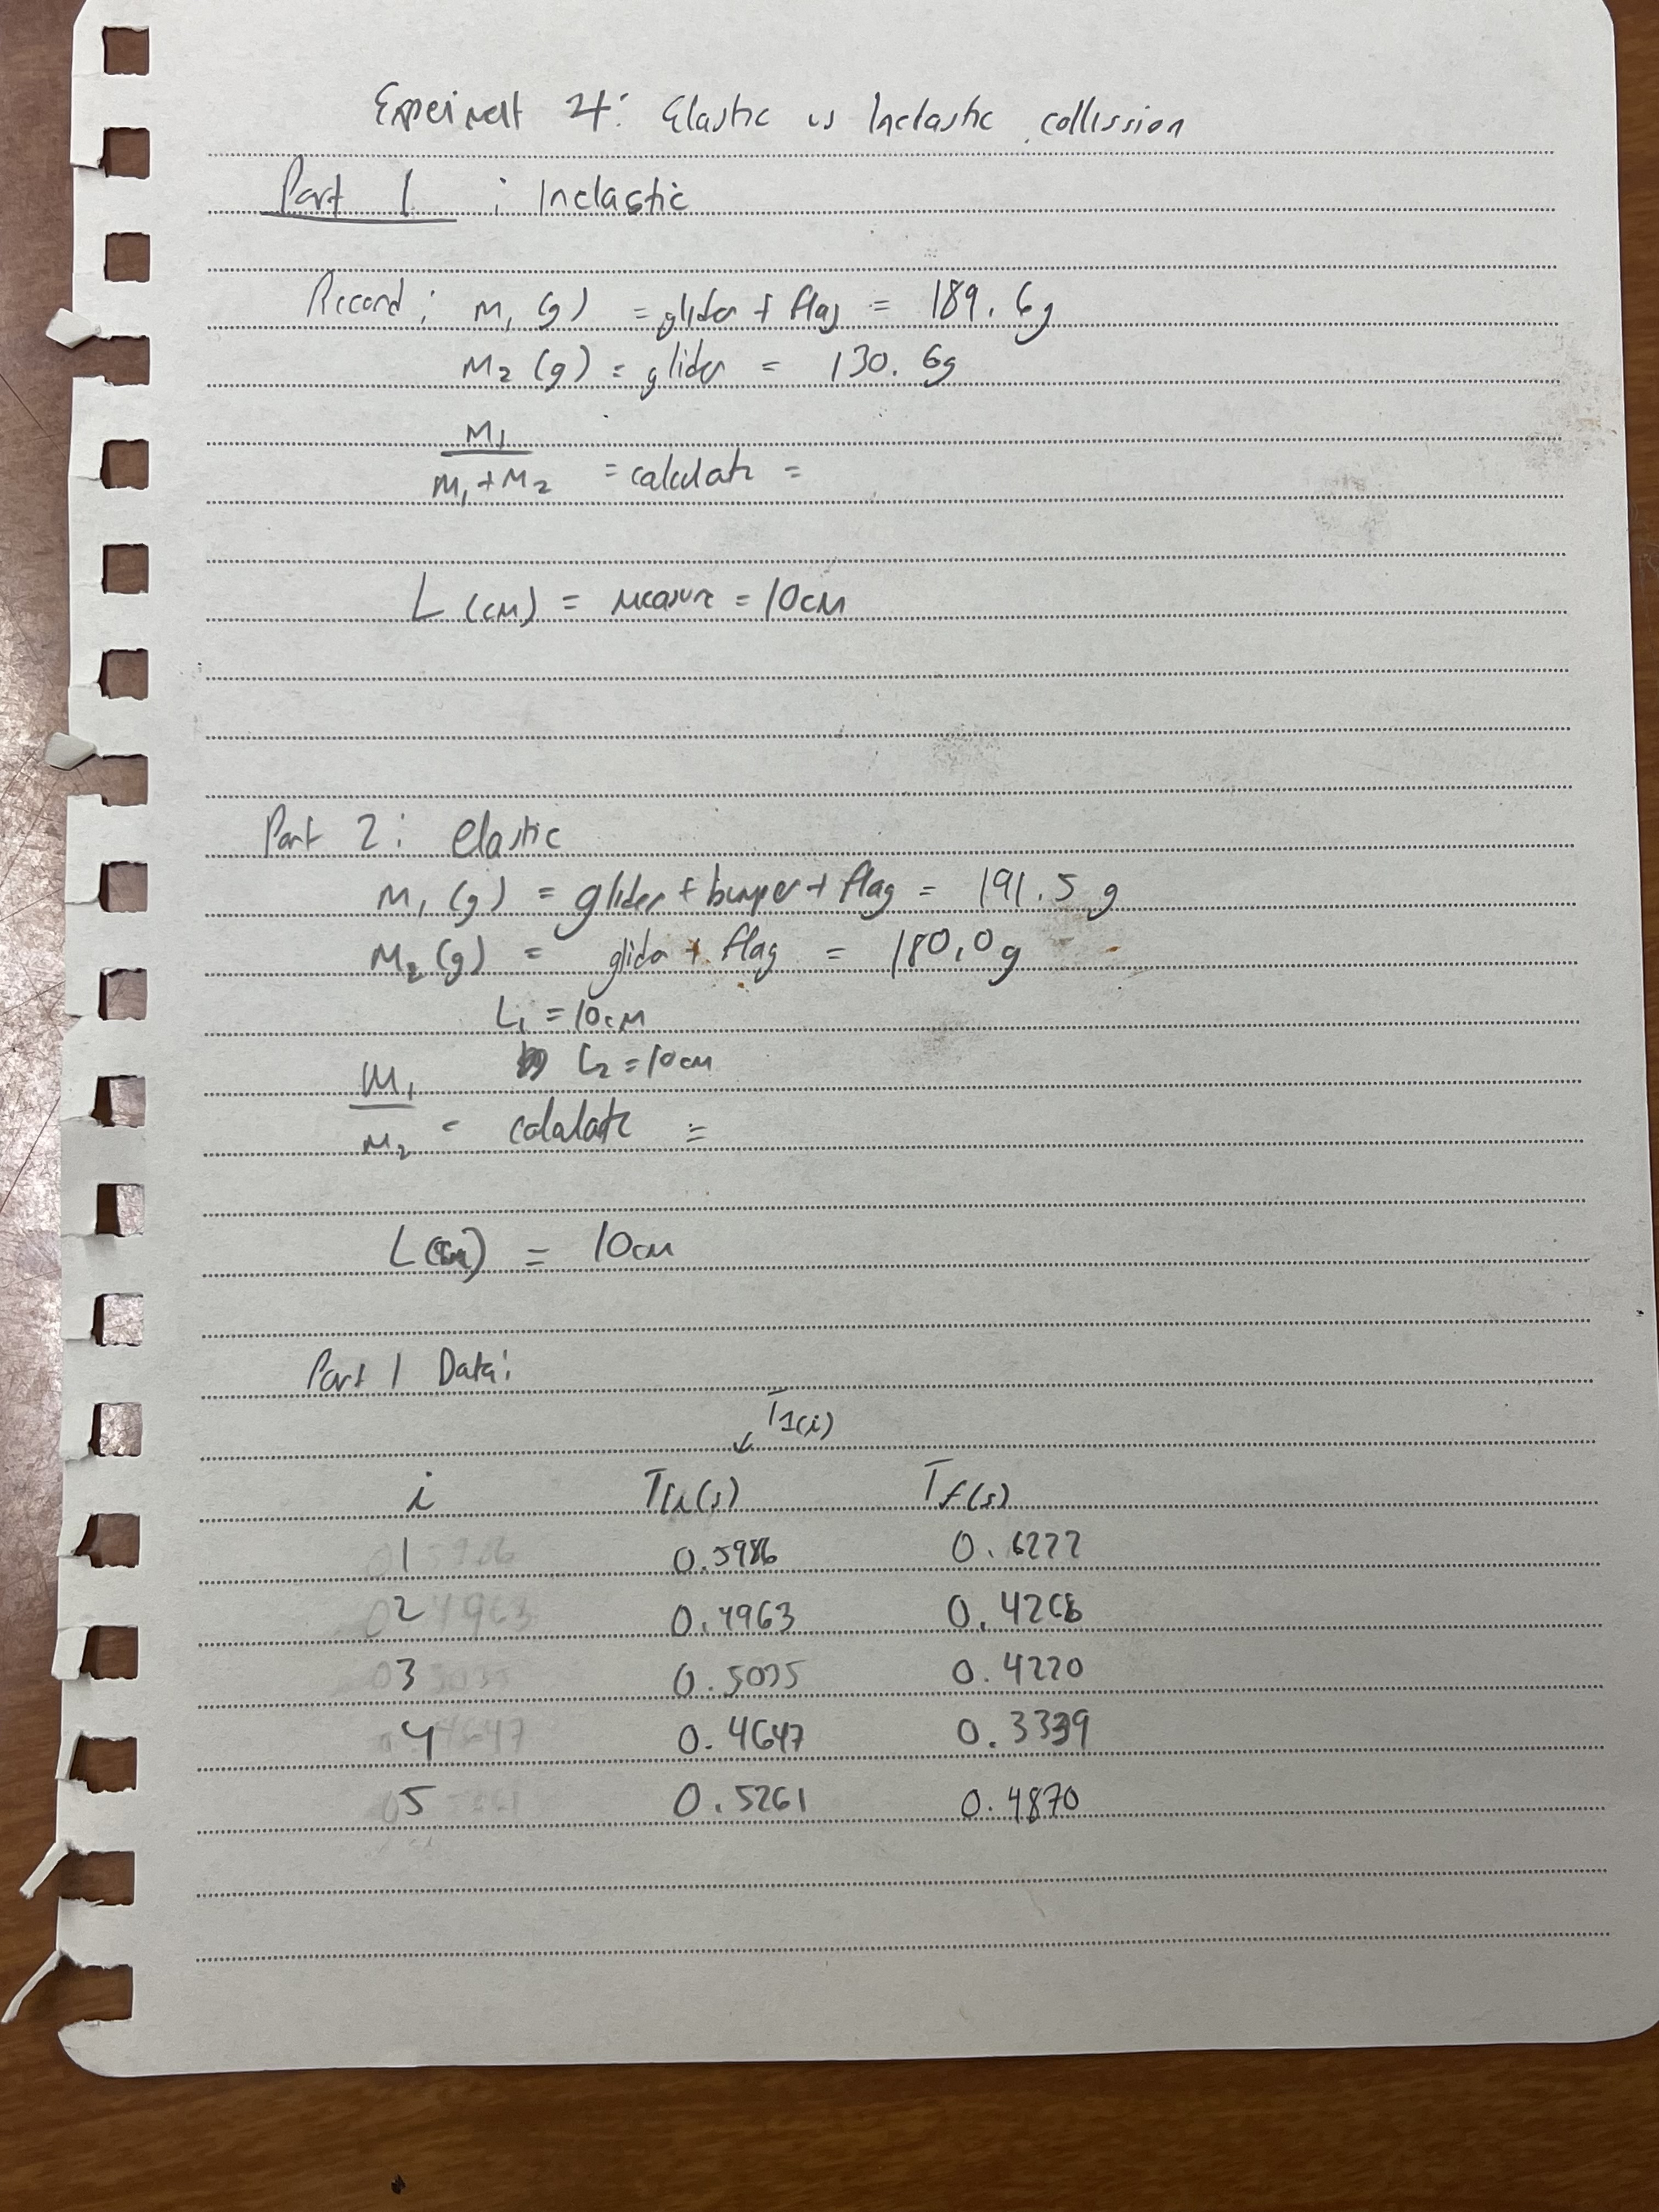 Experiment 4: Elastic vs Inelastic collission
Part 1 : Inelastic
Record: M₁ (g) = glider + flag = 189.6g
M₂ (g) = glider = 130.6g
M₁
M₁+M₂ = calculate =
L (cm) = measure = 10cm
Part 2: elastic
M₁ (g) = glider + bumper + flag = 191.5 g
M₂ (g) = glider + flag = 180.0g
L₁ = 10cm
L₂ = 10cm
M₁
M₂ = calculate =
L(cm) = 10cm
Part 1 Data:
T1(i)
i Tfi(s) Tf(s)
1 0.5986 0.6222
2 0.4963 0.4268
3 0.5035 0.4220
4 0.4647 0.3339
5 0.5261 0.4870